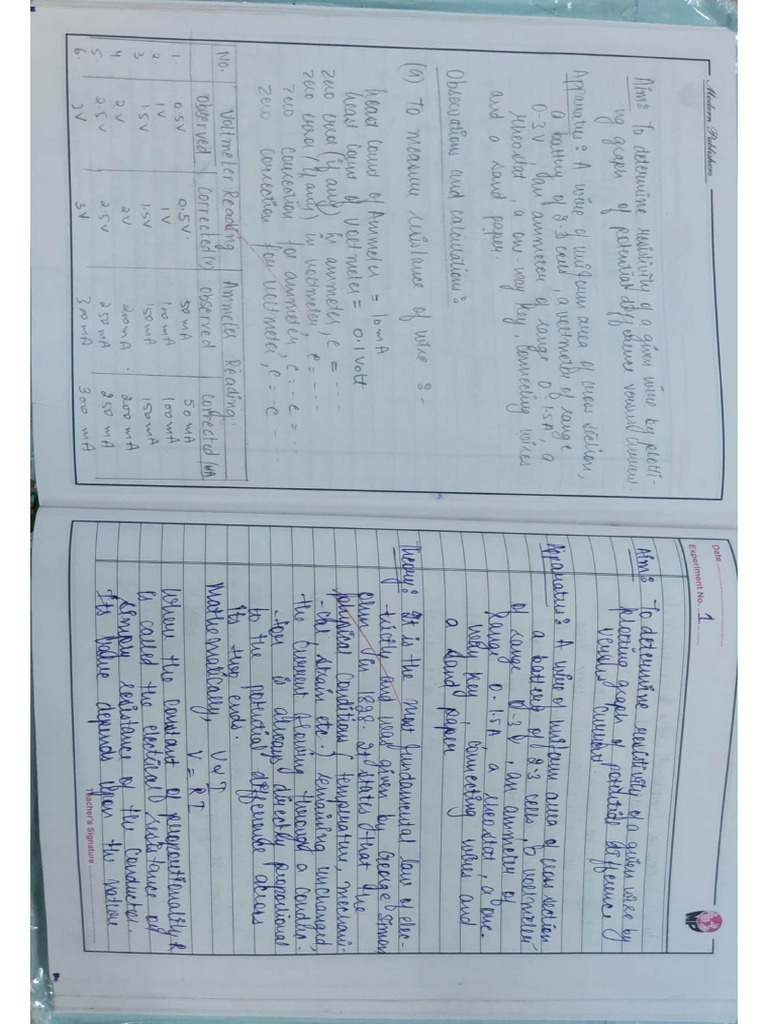 Modern Publishers
Aim: To determine resistivity of a given wire by plotti-
ng graph of potential difference versus current.
Apparatus: A wire of uniform area of cross section,
a battery of 2-3 cells, a voltmeter of range
0-3 V, an ammeter of range 0-1.5A, a
rheostat, a on-way key, connecting wires
and a sand paper.
Observation and calculation:
(a) To measure resistance of wire :-
least count of Ammeter = 10mA
least count of voltmeter = 0.1 Volt
zero error (if any) in ammeter, e = ---
zero error (if any) in voltmeter, e = ---
zero correction for ammeter, c = -e = ---
zero correction for voltmeter, c = -e ----
No. Voltmeter Reading Ammeter Reading.
Observed Corrected(V) Observed Corrected mA
1. 0.5V 0.5V. 50 mA 50 mA
2. 1V 1V 100mA 100mA
3 1.5V 1.5V 150mA 150mA
4 2V 2V 200mA. 200 mA
5 2.5V 2.5V 250mA 250 mA
6. 3V 3V 300mA 300 mA
Date
Experiment No. 1
Aim: To determine resistivity of a given wire by
ploting graph of potential difference
versus current.
Apparatus: A wire of uniform area of cross section
a battery of 2-3 cells, a voltmeter
of range 0-3 V, an ammeter of
range 0-1.5A, a rheostat, a one-
way key, connecting wires and
a sand paper
Theory: It is the most fundamental law of elec-
tricity and was given by George Simon
ohm in 1828. It states that the
physical conditions (temperature, mechani-
-cal strain etc.) remaining unchanged,
the current flowing through a conduc-
-tor is always directly proportional
to the potential difference across
its two ends.
Mathematically, V ∝ I
V = RI
where the constant of proportionality R
is called the electrical resistance or
simply resistance of the conductor.
Its value depends upon the nature
Teacher's Signature